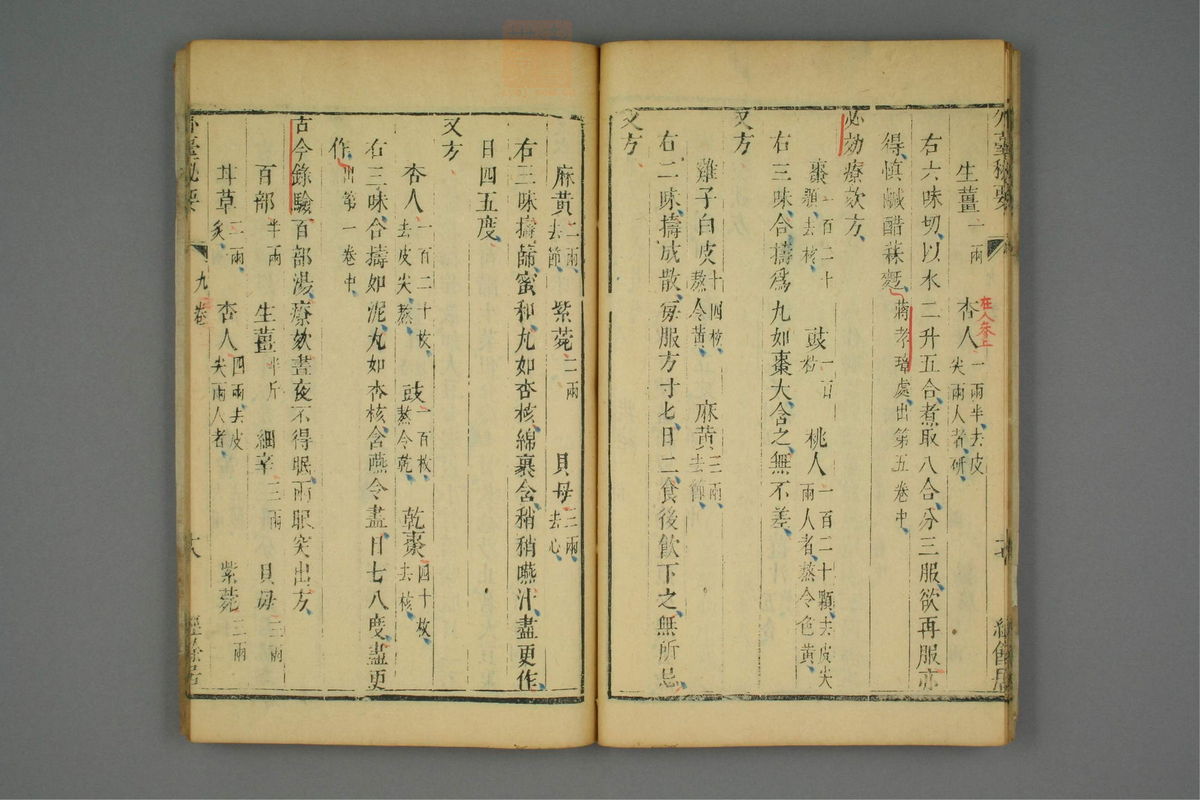 外臺秘要
生薑一兩 杏人一兩半去皮尖兩人者研
在人參上
右六味切以水二升五合煮取八合分三服欲再服亦
得慎鹹醋蒜麪蔣孝璋處出第五卷中
必効療欬方
棗一百二十顆去核 豉一百粒 桃人一百二十顆去皮尖兩人者熬令色黃
右三味合擣爲丸如棗大含之無不差
又方
雞子白皮十四枚熬令黃 麻黃三兩去節
右二味擣成散每服方寸匕日二食後飲下之無所忌
又方
麻黃二兩去節 紫菀二兩 貝母三兩去心
右三味擣篩蜜和丸如杏核綿裹含稍稍嚥汁盡更作
日四五度
又方
杏人一百二十枚去皮尖熬 豉一百枚熬令乾 乾棗四十枚去核
右三味合擣如泥丸如杏核含嚥令盡日七八度盡更
作出第一卷中
古今錄驗百部湯療欬晝夜不得眠兩眼突出方
百部半兩 生薑半斤 細辛三兩 貝母三兩
甘草二兩炙 杏人四兩去皮尖兩人者 紫菀三兩
外臺秘要 九卷 十八 經餘居